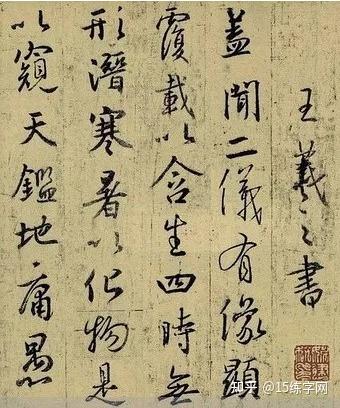 王羲之書
蓋聞二儀有像顯
覆載以含生四時無
形潛寒暑以化物是
以窺天鑑地庸愚
知乎 @15练字网